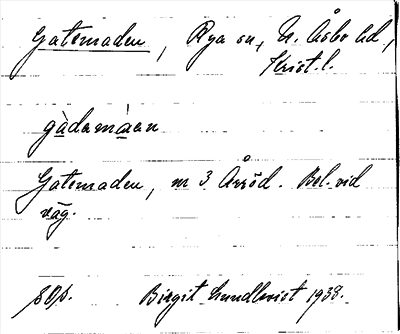 Gatemaden, Rya sn, N. Åsbo hd,
Krist. l.
gàdəmàən
Gatemaden, m 3 Årröd. Bel. vid
väg.
Birgit Lundkvist 1938.